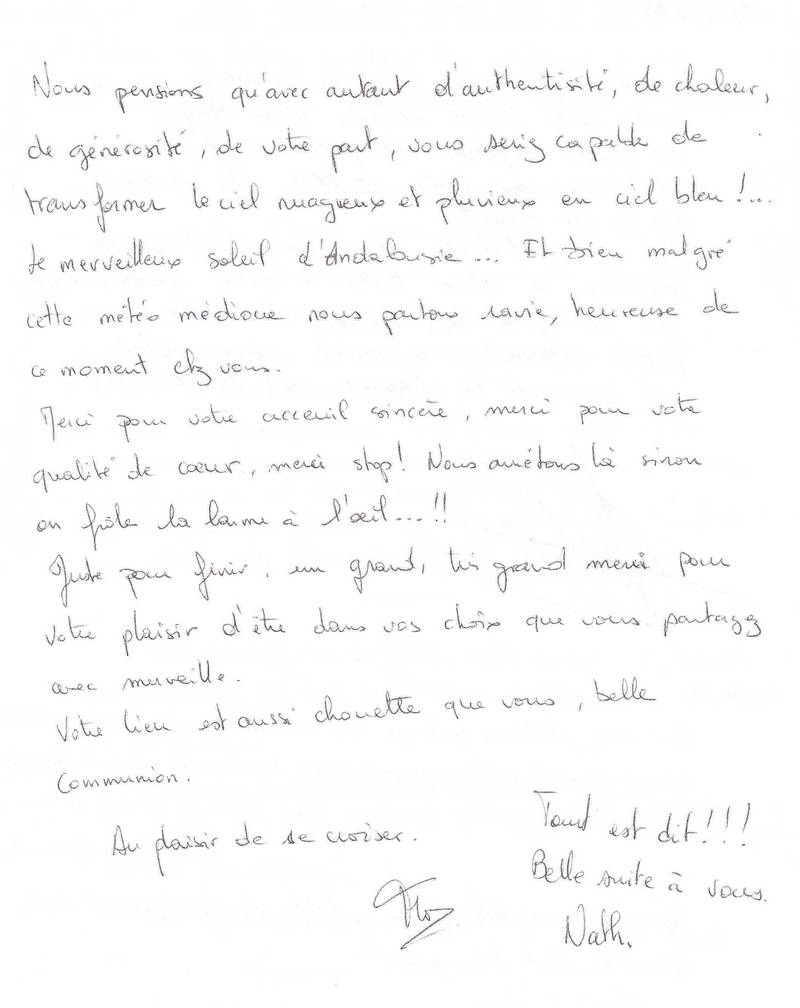 Nous pensions qu'avec autant d'authentisité, de chaleur,
de générosité, de votre part, vous seriez capable de
transformer le ciel nuageux et pluvieux en ciel bleu !...
Le merveilleux soleil d'Andalousie... Et bien malgré
cette météo médiocre nous partons ravie, heureuse de
ce moment chez vous.
Merci pour votre acceuil sincère, merci pour votre
qualité de cœur, merci stop! Nous arrêtons là sinon
on frôle la larme à l'œil...!!
Juste pour finir, un grand, très grand merci pour
votre plaisir d'être dans vos choix que vous partagez
avec merveille.
Votre lieu est aussi chouette que vous, belle
communion.
Au plaisir de se croiser.
Flo
Tout est dit!!!
Belle suite à vous.
Nath.